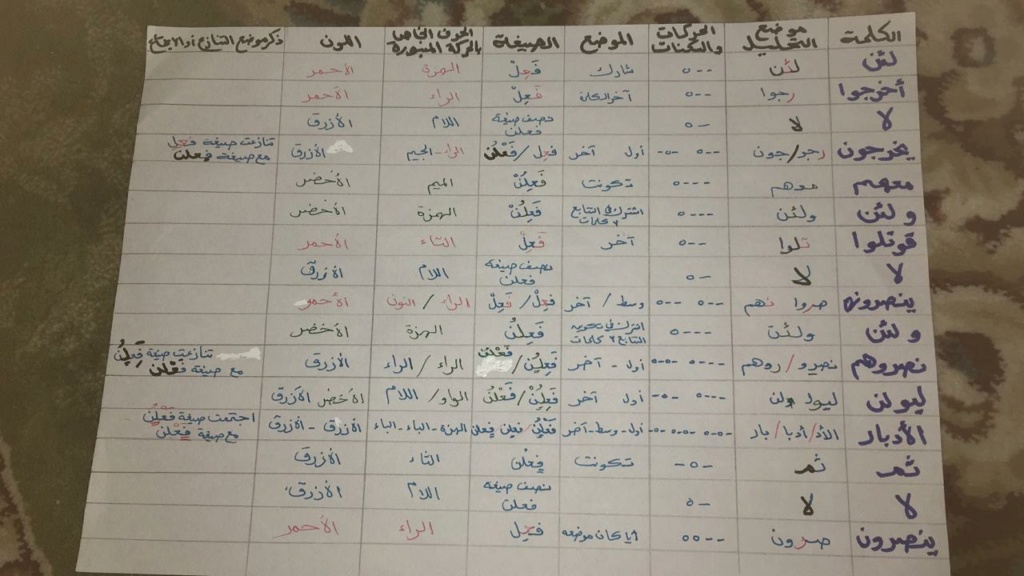 الكلمة موضع التحليل الحركات والسكنات الموضع الصيغة الحرف الخاص بالحركة اللون ذكر موضع التنازع أو الاجتماع
لئن لئن --٥ فَعِلْ الهمزة الأحمر
أخرجوا رجوا --٥ آخر الكلمة فَعِلْ الراء الأحمر
لا لا -٥ نصف صيغة فعلن اللام الأزرق
يخرجون رجو/جون --٥ -٥- أول آخر فعل/فَعْلن الراء-الجيم الأزرق تنازعت صيغة فعل مع صيغة فعلن
معهم معهم ---٥ تكونت فَعِلُنْ الميم الأخضر
ولئن ولئن ---٥ فَعِلُنْ الهمزة الأخضر
قوتلوا تلوا --٥ آخر فَعِلْ التاء الأحمر
لا لا -٥ نصف صيغة فعلن اللام الأزرق
ينصرونهم صروا نهم --٥ --٥ وسط/آخر فَعِلْ/فَعِلْ الراء/النون الأحمر
ولئن ولئن ---٥ فَعِلُنْ الهمزة الأخضر
نصروهم نصرو/روهم ---٥ -٥-٥ أول-آخر فَعِلُنْ/فعْلن الراء/الراء الأزرق تنازعت صيغة فَعِلُنْ مع صيغة فعْلن
ليولن ليولـ ولن ---٥ -٥- أول آخر فَعِلُنْ/فَعْلُنْ الواو/اللام الأخضر الأزرق
الأدبار الأد/أدبا/بار أول-وسط-آخر فعلن فعلن الهمزة-الباء-الباء الأزرق-الأزرق اجتمعت صيغة فعْلن مع صيغة فعْلن
ثم ثم -٥- تكونت فعْلن الثاء الأزرق
لا لا -٥ نصف صيغة فعلن اللام الأزرق
ينصرون صرون --٥٥ أيا كان موضعه الراء الأحمر